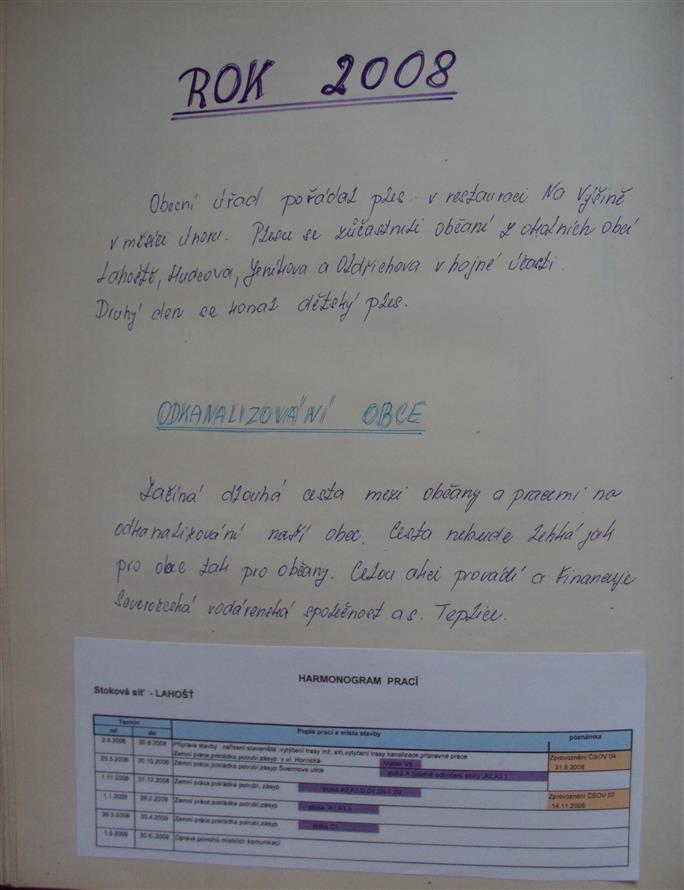 ROK 2008
Obecní úřad pořádal ples v restauraci Na Výšině
v měsíci únoru. Plesu se zúčastnili občané z okolních obcí
Lahoště, Hudcova, Jeníkova a Oldřichova v hojné účasti.
Druhý den se konal dětský ples.
ODKANALIZOVÁNÍ OBCE
Začíná dlouhá cesta mezi občany a pracemi na
odkanalizování naší obce. Cesta nebude lehká jak
pro obce tak pro občany. Celou akci provádí a financuje
Severočeská vodárenská společnost a.s. Teplice.
HARMONOGRAM PRACÍ
Stoková síť - LAHOŠŤ
Termín
od do Popis prací a místa stavby poznámka
2.6.2008 30.8.2008 Příprava stavby , zařízení staveniště ,vytýčení trasy inž. sítí,vytýčení trasy kanalizace,přípravné práce
25.8.2008 30.10.2008 Zemní práce,pokládka potrubí,zásyp v ul. Hornická Výtlak V6 Zprovoznění ČSOV 04
Zemní práce,pokládka potrubí,zásyp Švermova ulice stoka A 31.8.2008
1.11.2008 31.12.2008 Zemní práce,pokládka potrubí, zásyp stoka
1.1.2009 28.2.2009 Zemní práce,pokládka potrubí,zásyp stoka Zprovoznění ČSOV 07
14.11.2008
30.4.2009 Zemní práce,pokládka potrubí,zásyp stoka C1
1.5.2009 30.6.2009 Oprava povrchů místních komunikací